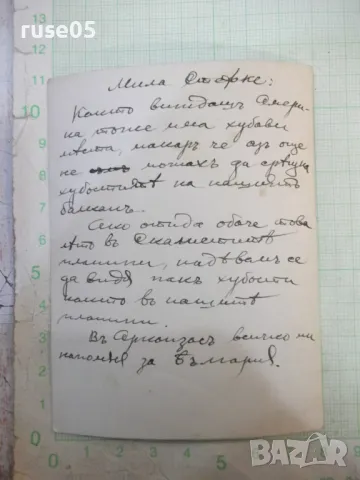 ruse05
Мила Сторке:
Както виждашъ Амери-
ка също има хубави
мѣста, макаръ че азъ още
не можахъ да срѣщна
хубоститѣ на нашиятъ
балканъ.
Ако отида обаче това
лѣто въ Скалиститѣ
планини, надѣвамъ се
да видя пакъ хубости
както въ нашитѣ
планини.
Въ Арканзасъ всичко ми
напомня за България.
БАЗАР
bg